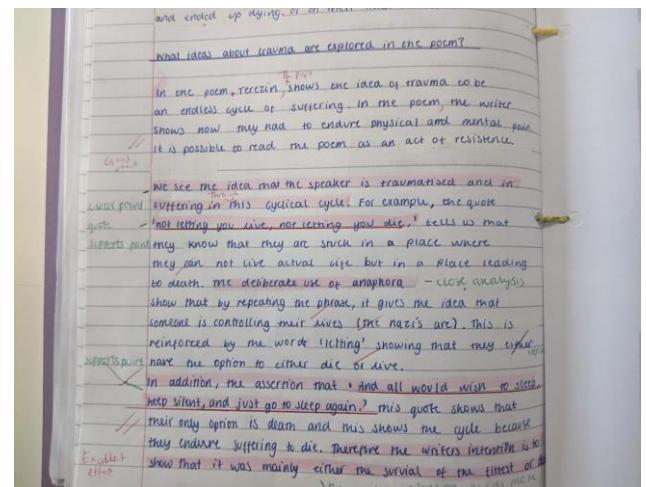 and ended up dying. or on their
What ideas about trauma are explored in the poem?
the poet
In the poem, Terezin, shows the idea of trauma to be
an endless cycle of suffering. In the poem, the writer
shows how they had to endure physical and mental pain.
It is possible to read the poem as an act of resistence.
Good start
we see the idea that the speaker is traumatised and in
through
clear point suffering in this cyclical cycle. For example, the quote
quote 'not letting you live, not letting you die,' tells us that
supports point they know that they are stuck in a place where
they can not live actual life but in a place leading
to death. The deliberate use of anaphora - close analysis
show that by repeating the phrase, it gives the idea that
someone is controlling their lives (the nazi's are). This is
reinforced by the word 'letting' showing that they either
supports point have the option to either die or live.
In addition, the assertion that 'And all would wish to sleep,
keep silent, and just go to sleep again.' This quote shows that
their only option is death and this shows the cycle because
they endure suffering to die. Therefore the writers intention is to
Excellent effort show that it was mainly either the survial of the fittest or